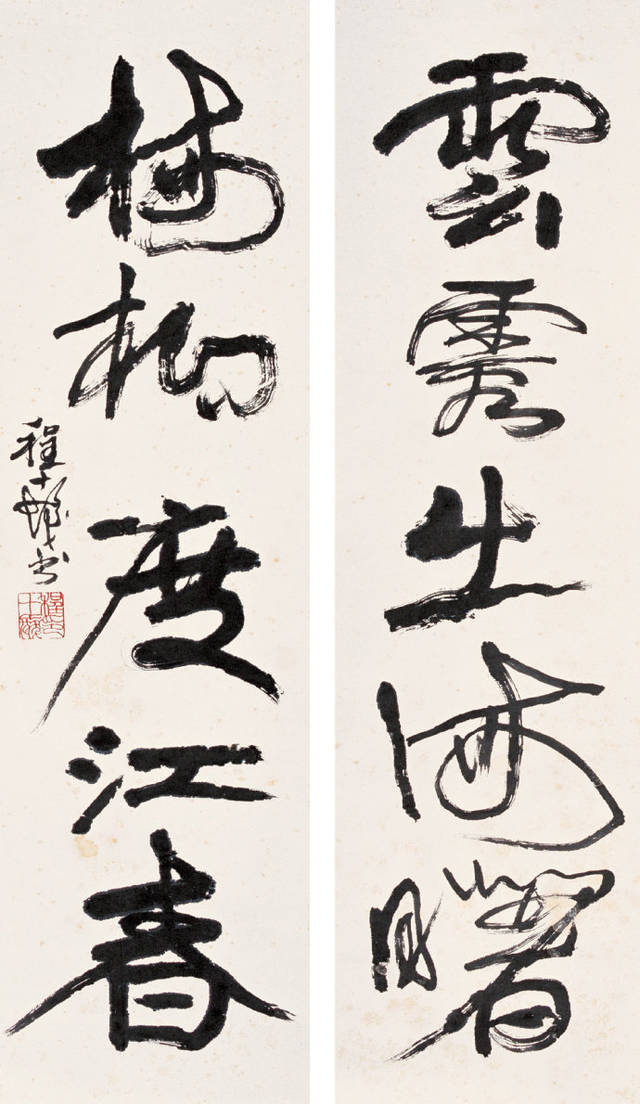 雲霞出海曙
梅柳度江春
程十髮書
程十髮